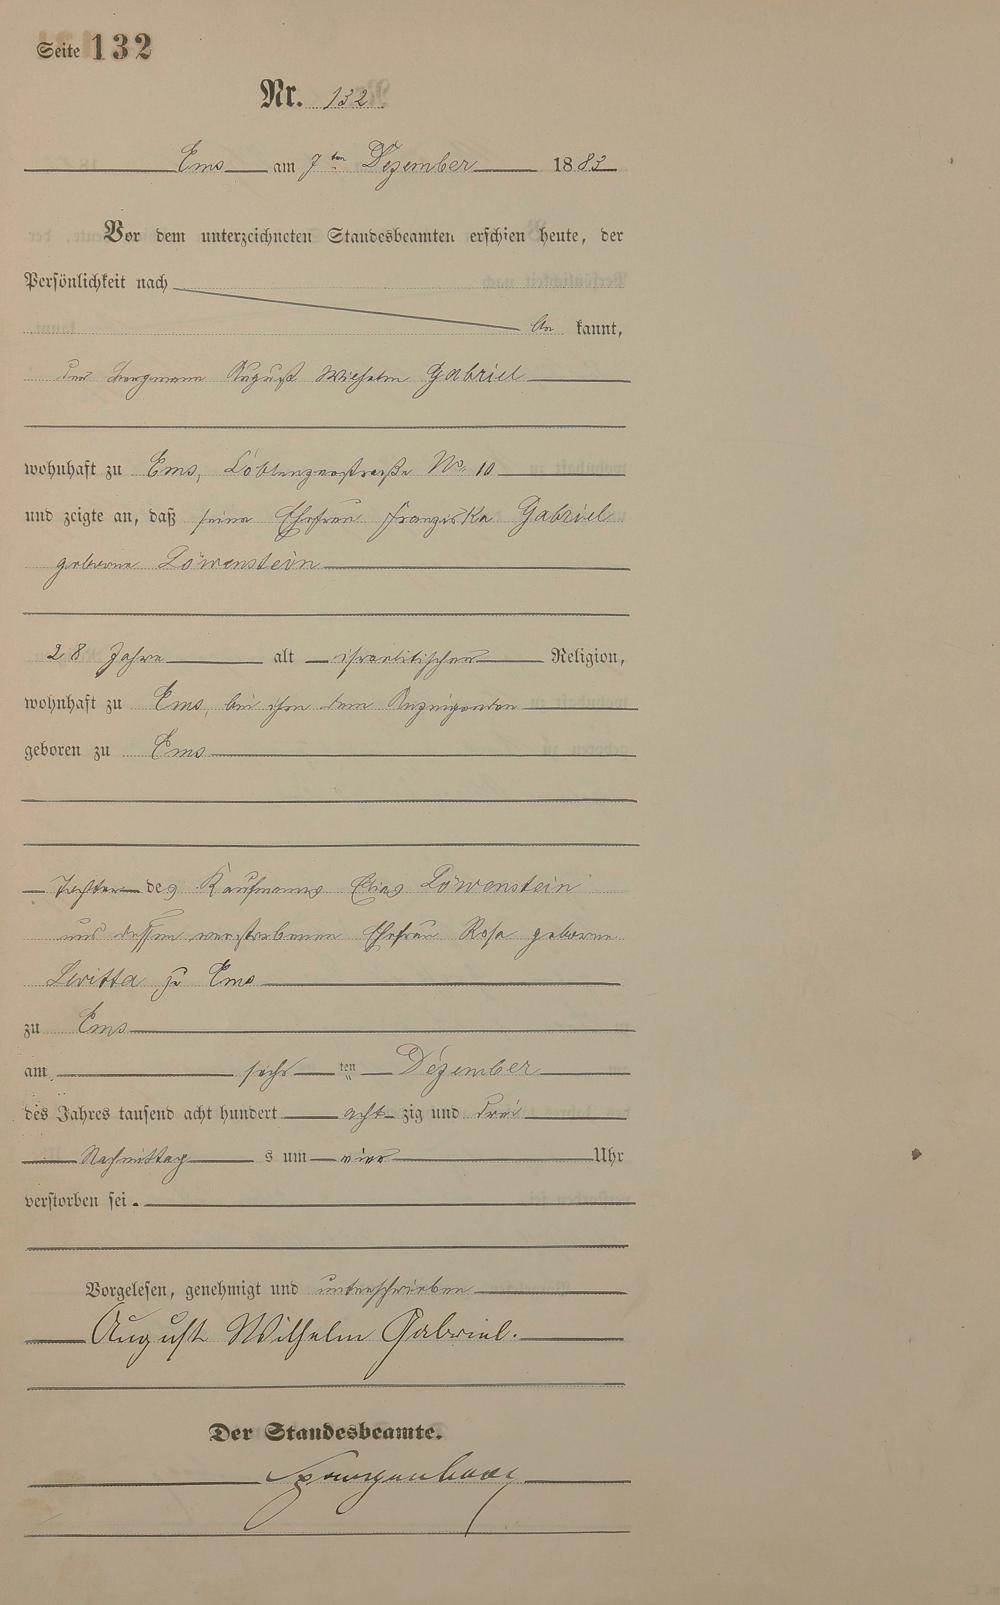 Seite 132
Nr. 132
Ems am 7ten Dezember 1883
Vor dem unterzeichneten Standesbeamten erschien heute, der
Persönlichkeit nach
be kannt,
der Bergmann August Wilhelm Gabriel
wohnhaft zu Ems, Coblenzerstraße No. 10
und zeigte an, daß seine Ehefrau Franziska Gabriel
geborene Löwenstein
28 Jahre alt israelitischer Religion,
wohnhaft zu Ems, bei ihm dem Anzeigenden
geboren zu Ems
Tochter des Kaufmanns Elias Löwenstein
und dessen verstorbenen Ehefrau Rosa geborene
Levitta zu Ems
zu Ems
am sechs ten Dezember
des Jahres tausend acht hundert acht zig und drei
Nachmittag s um vier Uhr
verstorben sei.
Vorgelesen, genehmigt und unterschrieben
August Wilhelm Gabriel.
Der Standesbeamte.